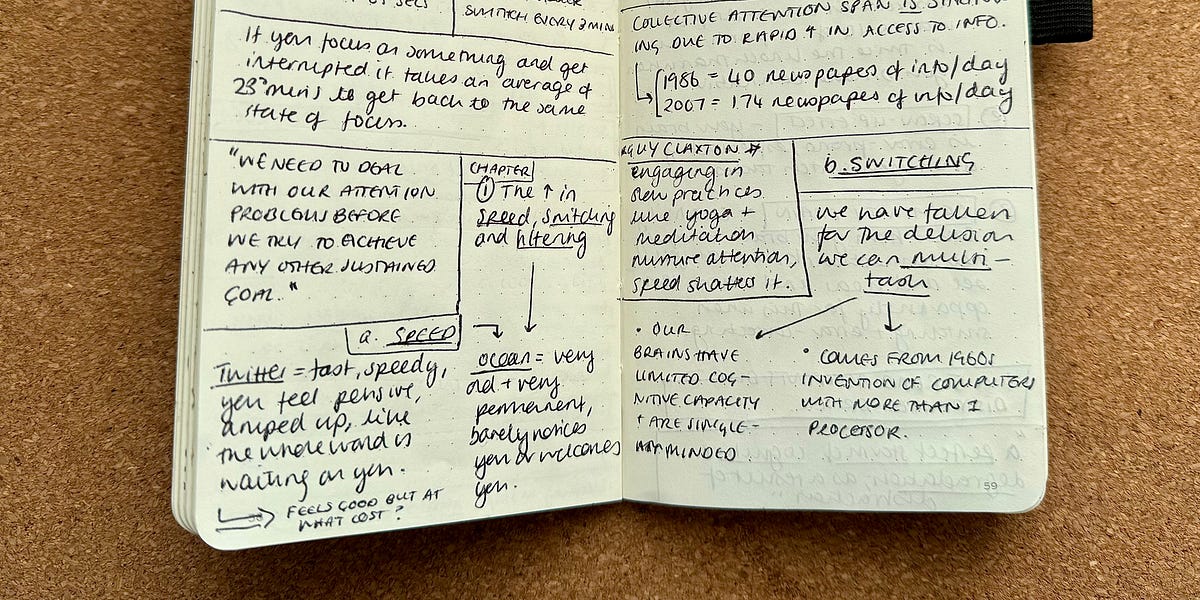 SWITCH EVERY 3 MINS
If you focus on something and get
interrupted it takes an average of
23 mins to get back to the same
state of focus.
"WE NEED TO DEAL
WITH OUR ATTENTION
PROBLEMS BEFORE
WE TRY TO ACHIEVE
ANY OTHER SUSTAINED
GOAL."
CHAPTER
① The ↑ in
speed, switching
and filtering
a. SPEED
Twitter = fast, speedy,
you feel pensive,
amped up, like
the whole world is
waiting on you.
FEELS GOOD BUT AT
WHAT COST?
ocean = very
old + very
permanent,
barely notices
you or welcomes
you.
COLLECTIVE ATTENTION SPAN IS
ING DUE TO RAPID ↑ IN ACCESS TO INFO.
1986 = 40 newspapes of info/day
2007 = 174 newspapes of info/day
GUY CLAXTON
engaging in
slow practices
like yoga +
meditation
nurture attention,
speed shatters it.
b. SWITCHING
we have fallen
for the delusion
we can multi-
task
• OUR
BRAINS HAVE
LIMITED COG-
NITIVE CAPACITY
+ ARE SINGLE-
MINDED
• COMES FROM 1960s
INVENTION OF COMPUTERS
WITH MORE THAN 1
PROCESSOR.
59